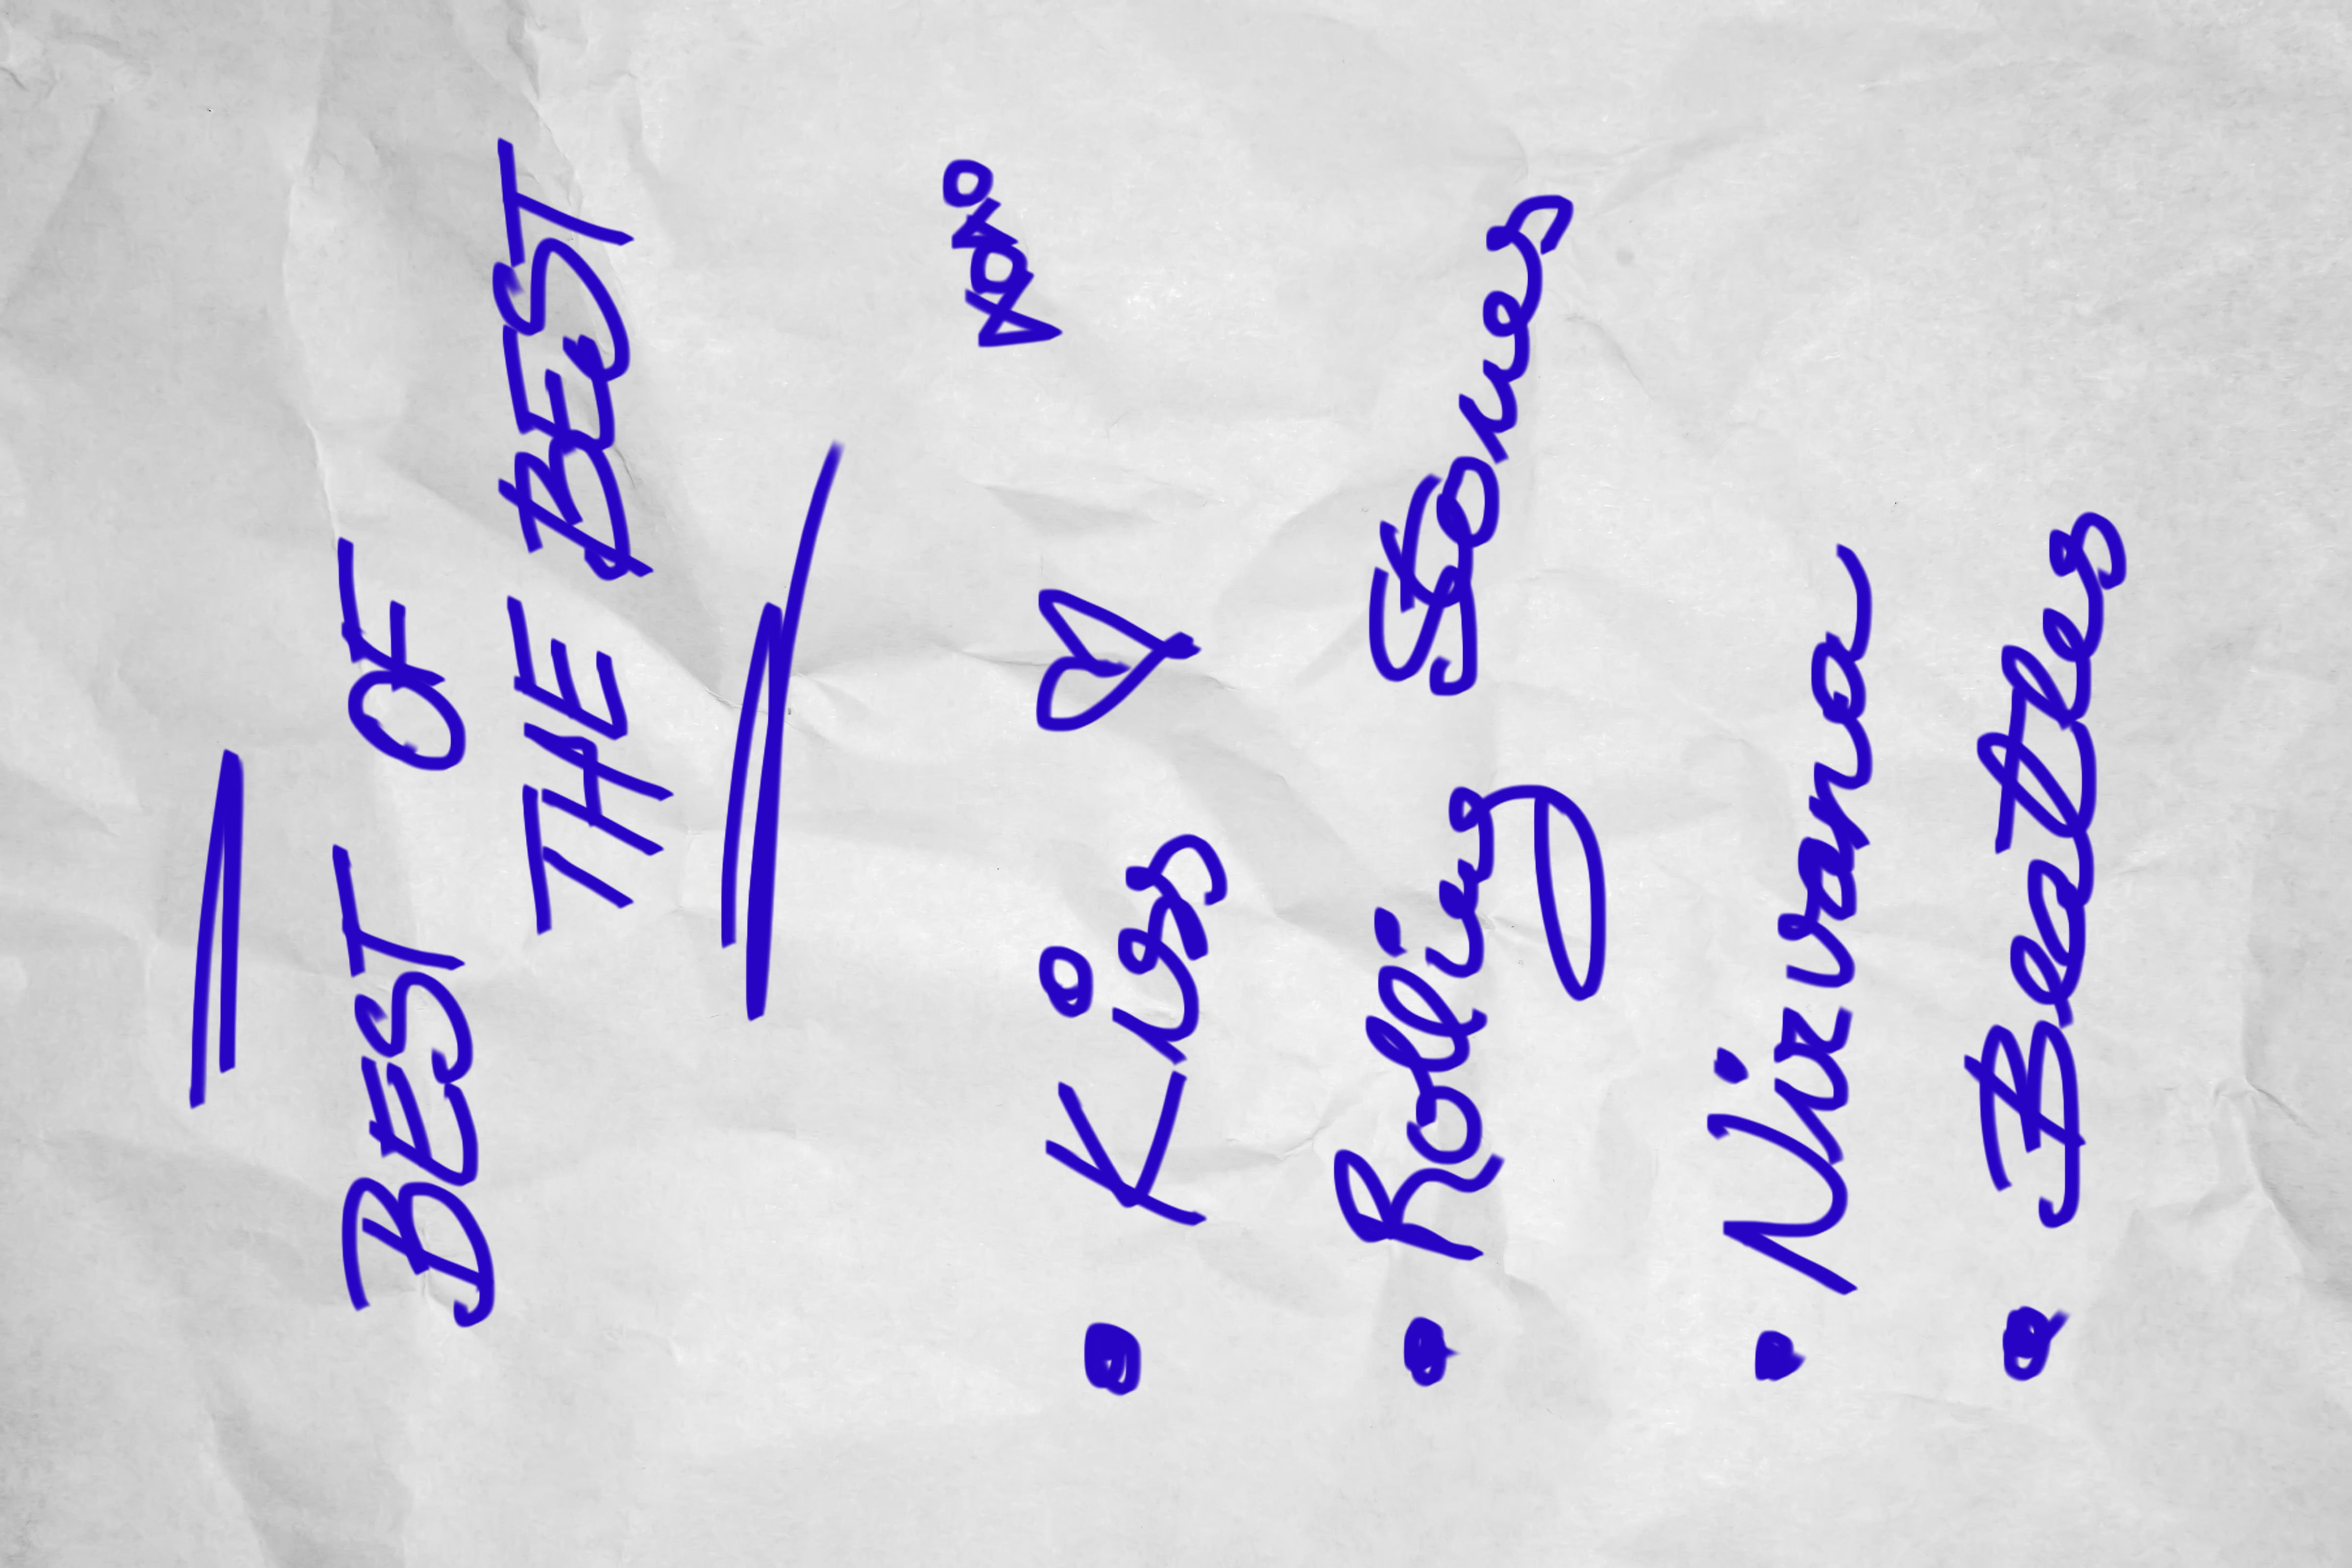 BEST OF
THE BEST
• Kiss
• Rolling Stones
• Nirvana
• Beatles